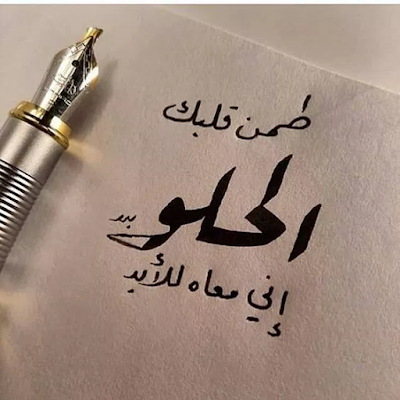 طمن قلبك
الحلو
إني معاه للأبد